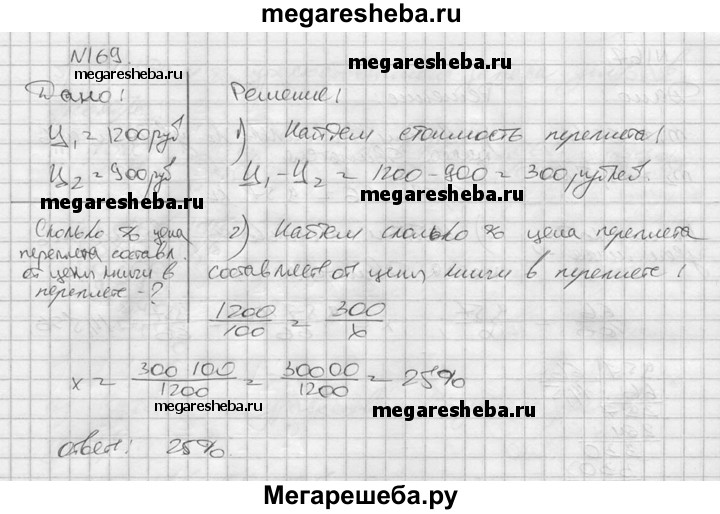 megaresheba.ru
N169.
megaresheba.ru
megaresheba.ru
Дано:
Ц₁ = 1200 руб
Ц₂ = 900 руб
megaresheba.ru
Сколько % цена
переплета составл.
от цены книги в
переплете - ?
Решение:
1) Найдем стоимость переплета:
Ц₁ - Ц₂ = 1200 - 900 = 300 рублей.
megaresheba.ru
2) Найдем сколько % цена переплета
составляет от цены книги в переплете:
1200/100 = 300/x
x = 300 100/1200 = 30000/1200 = 25%
megaresheba.ru
megaresheba.ru
ответ: 25%.
Мегарешеба.ру